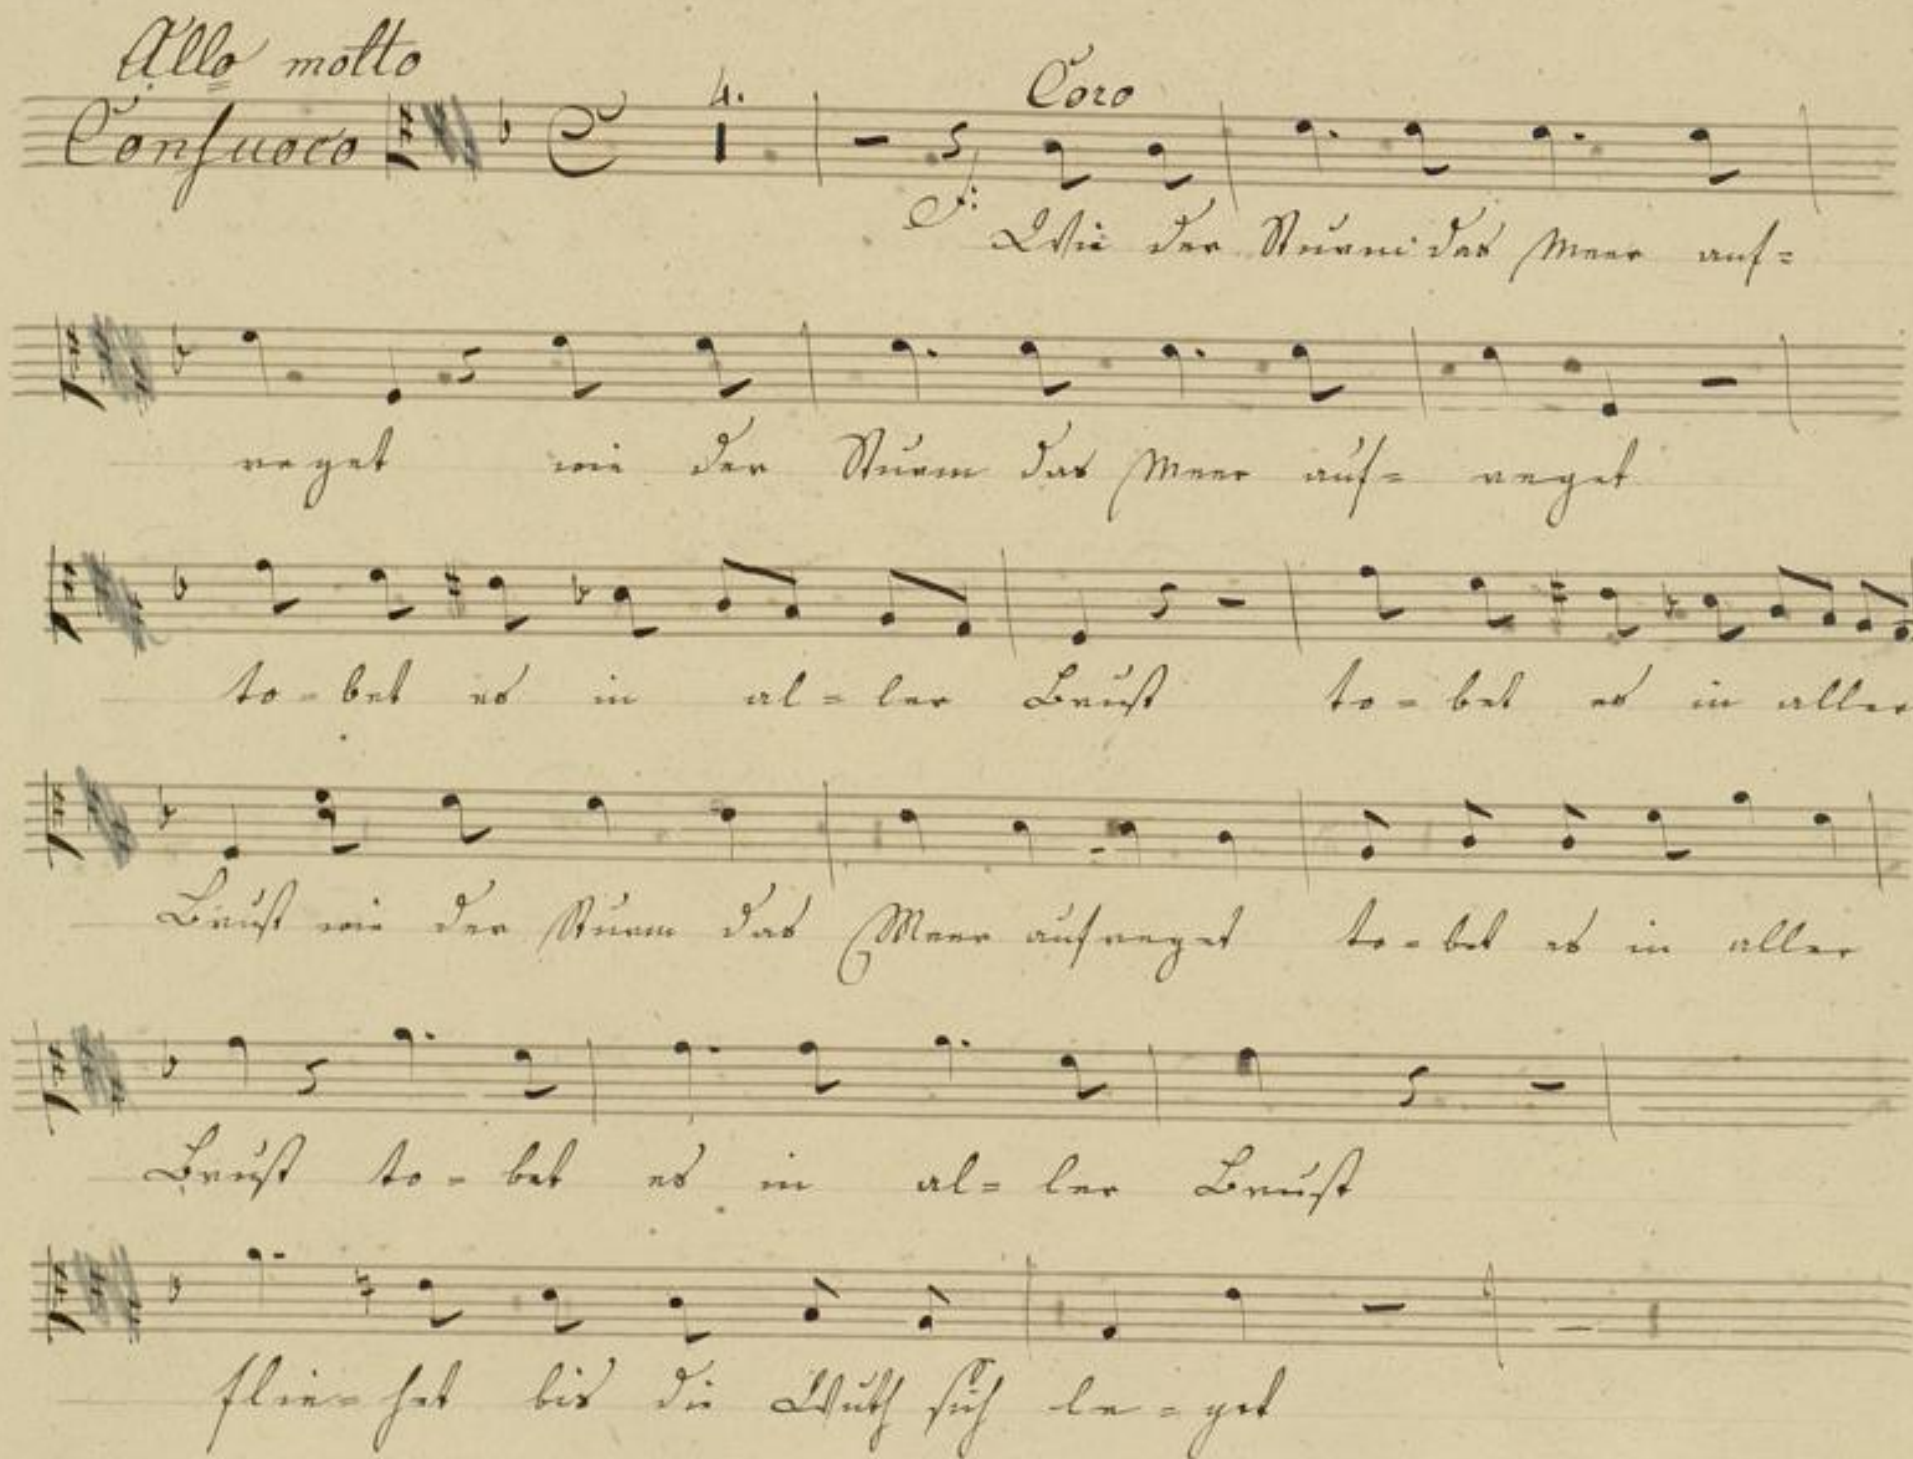 Allo molto
Con fuoco 4. Coro
F: Wie der Sturm das Meer auf=
reget wie der Sturm das Meer auf= reget
to - bet es in al = ler Brust to = bet es in aller
Brust wie der Sturm das Meer aufreget to = bet es in aller
Brust to = bet es in al= ler Brust
flie= het bis die Wuth sich le = get